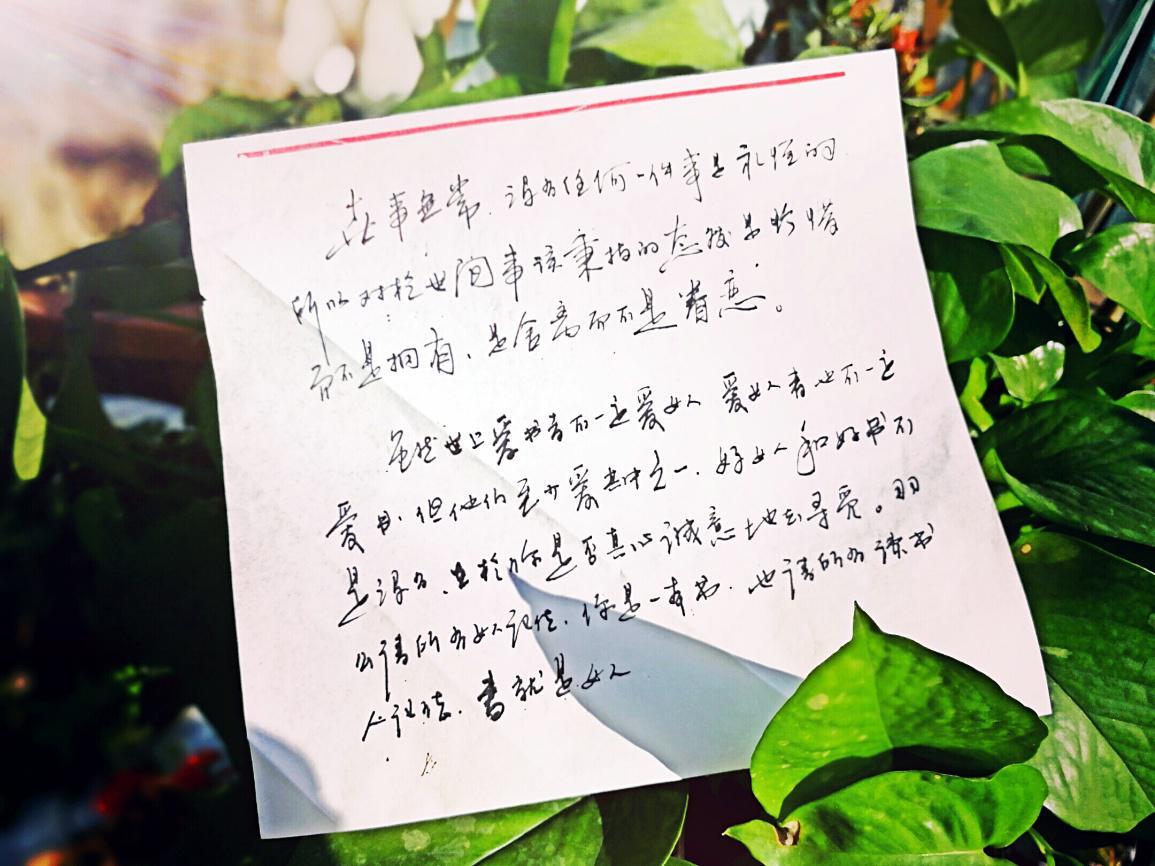 世事无常.没有任何一件事是永恒的
所以对於世间事该秉持的态度是珍惜
而不是拥有、是舍离而不是眷恋。
虽然世上爱书者不一定爱女人 爱女人者也不一定
爱书.但他们至少爱其中之一.好女人和好书不
是没有、在於你是否真心诚意地去寻觅。那
么请所有女人记住.你是一本书.也请所有读书
人记住.书就是女人